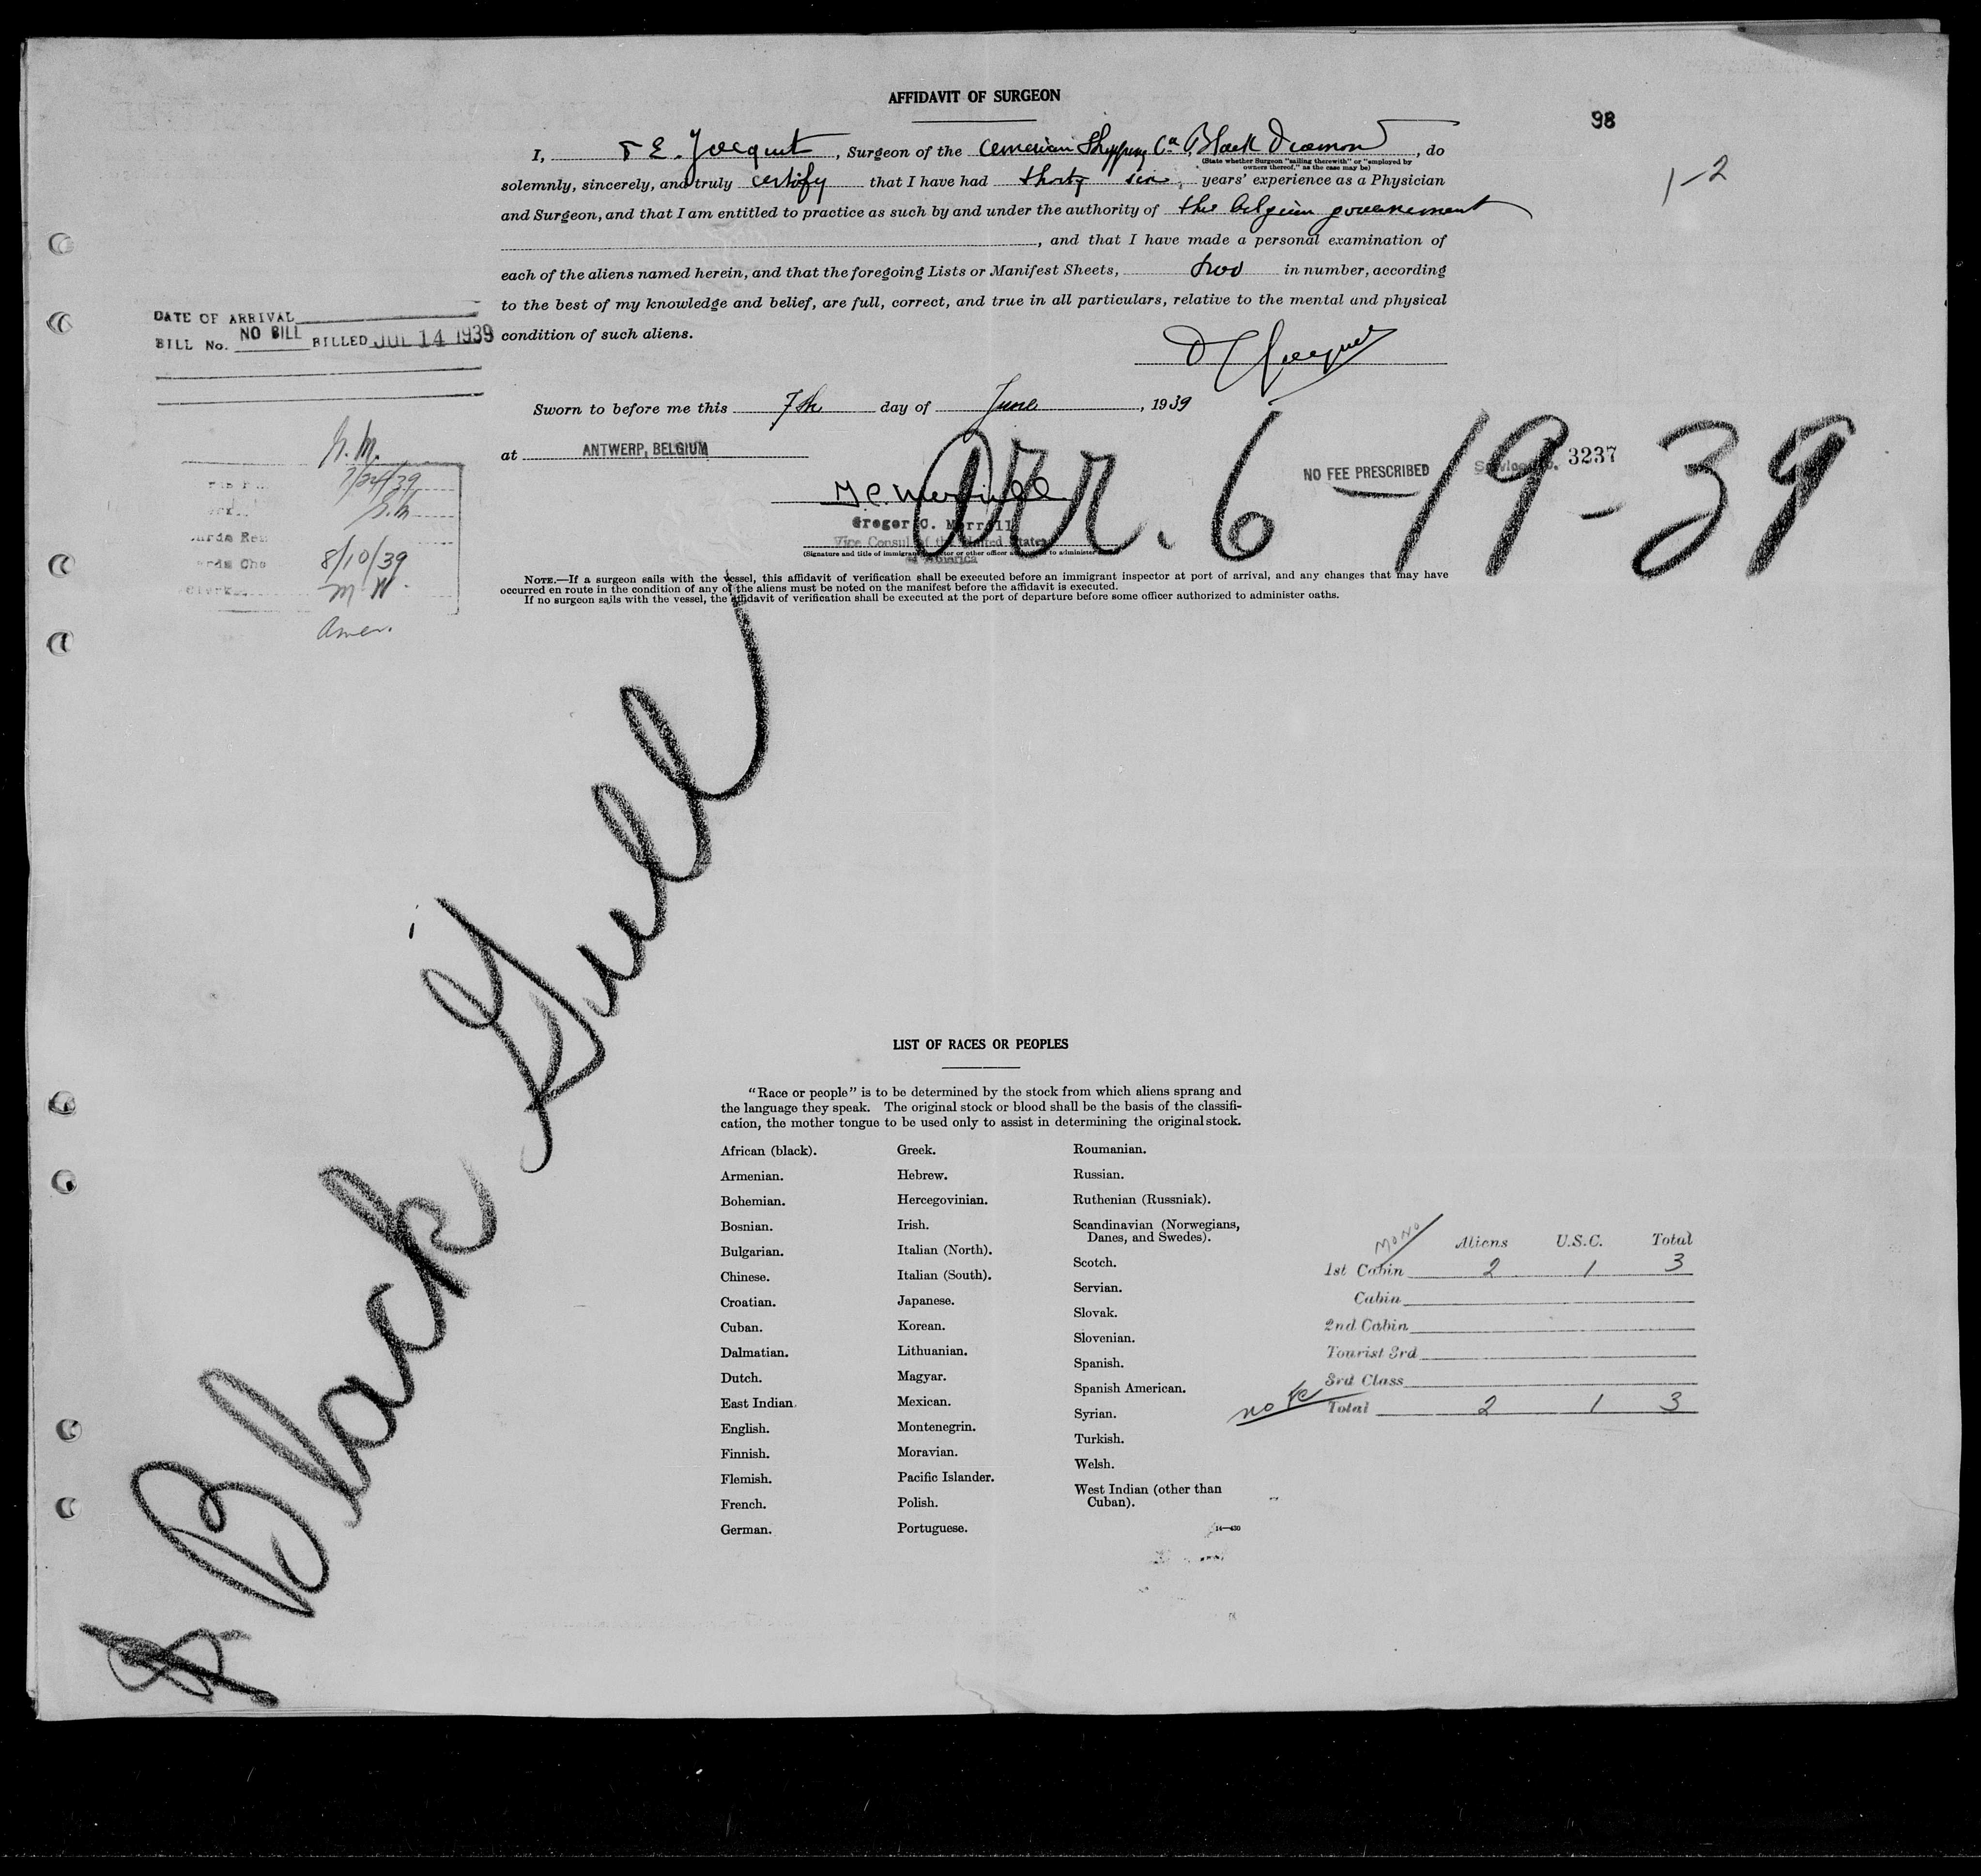 AFFIDAVIT OF SURGEON
98
1-2
I, E. Jacquet, Surgeon of the American Shipping Co. Black Diamond, do
(State whether Surgeon "sailing therewith" or "employed by
owners thereof," as the case may be)
solemnly, sincerely, and truly certify that I have had thirty six, years' experience as a Physician
and Surgeon, and that I am entitled to practice as such by and under the authority of the belgian
, and that I have made a personal examination of
each of the aliens named herein, and that the foregoing Lists or Manifest Sheets, two in number, according
to the best of my knowledge and belief, are full, correct, and true in all particulars, relative to the mental and physical
condition of such aliens.
DATE OF ARRIVAL
BILL No. NO BILL BILLED JUL 14 1939
Sworn to before me this 7th day of June, 1939
at ANTWERP, BELGIUM
Arr. 6-19-39
NO FEE PRESCRIBED
Service No. 3237
Vice Consul of the United States
of America
(Signature and title of immigrant inspector or other officer to administer
NOTE.—If a surgeon sails with the vessel, this affidavit of verification shall be executed before an immigrant inspector at port of arrival, and any changes that may have
occurred en route in the condition of any of the aliens must be noted on the manifest before the affidavit is executed.
If no surgeon sails with the vessel, the affidavit of verification shall be executed at the port of departure before some officer authorized to administer oaths.
8/10/39
M.W.
Amer.
Black Gull
LIST OF RACES OR PEOPLES
"Race or people" is to be determined by the stock from which aliens sprang and
the language they speak. The original stock or blood shall be the basis of the classifi-
cation, the mother tongue to be used only to assist in determining the original stock.
African (black).
Armenian.
Bohemian.
Bosnian.
Bulgarian.
Chinese.
Croatian.
Cuban.
Dalmatian.
Dutch.
East Indian.
English.
Finnish.
Flemish.
French.
German.
Greek.
Hebrew.
Hercegovinian.
Irish.
Italian (North).
Italian (South).
Japanese.
Korean.
Lithuanian.
Magyar.
Mexican.
Montenegrin.
Moravian.
Pacific Islander.
Polish.
Portuguese.
Roumanian.
Russian.
Ruthenian (Russniak).
Scandinavian (Norwegians,
Danes, and Swedes).
Scotch.
Servian.
Slovak.
Slovenian.
Spanish.
Spanish American.
Syrian.
Turkish.
Welsh.
West Indian (other than
Cuban).
14—430
MONO
Aliens U.S.C. Total
1st Cabin 2 1 3
Cabin
2nd Cabin
Tourist 3rd
3rd Class
Total 2 1 3